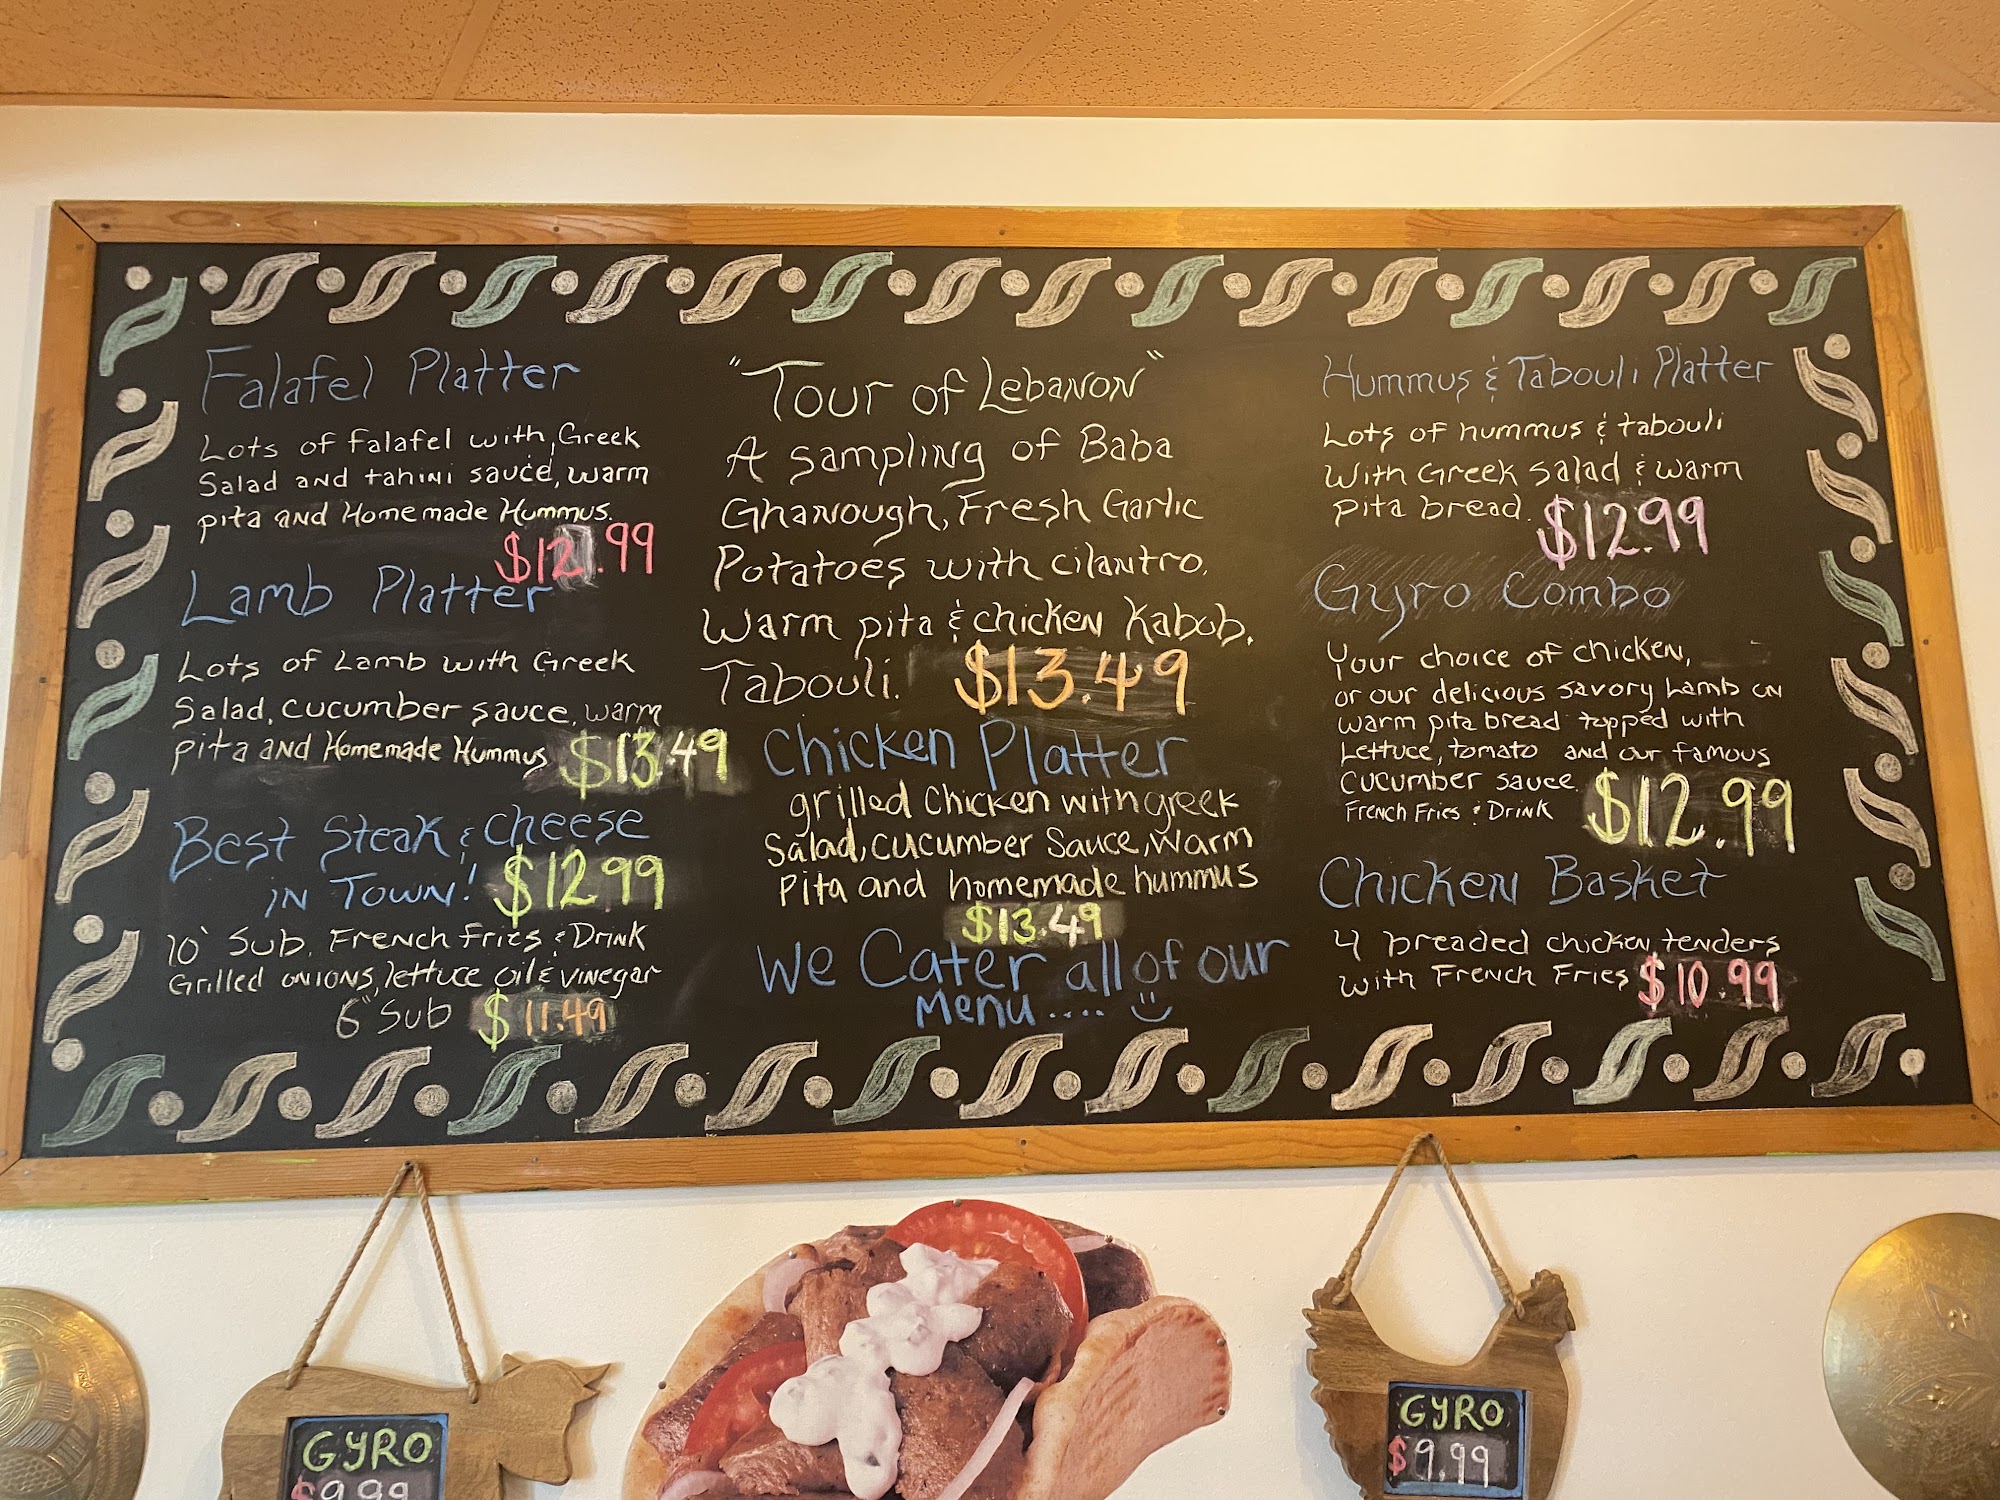 Falafel Platter
Lots of falafel with Greek
Salad and tahini sauce, warm
pita and Homemade Hummus.
$12.99
Lamb Platter
Lots of Lamb with Greek
Salad, cucumber sauce, warm
pita and Homemade Hummus $13.49
Best Steak & Cheese
in Town! $12.99
10" Sub, French Fries & Drink
Grilled onions, lettuce oil & vinegar
6" Sub $11.49
"Tour of Lebanon"
A sampling of Baba
Ghanough, Fresh Garlic
Potatoes with cilantro,
Warm pita & chicken Kabob,
Tabouli. $13.49
Chicken Platter
grilled Chicken with greek
Salad, cucumber Sauce, Warm
Pita and homemade hummus
$13.49
We Cater all of our
Menu....
Hummus & Tabouli Platter
Lots of hummus & tabouli
With Greek salad & warm
pita bread. $12.99
Gyro Combo
Your choice of chicken,
or our delicious savory Lamb on
warm pita bread topped with
Lettuce, tomato and our famous
cucumber sauce.
French Fries & Drink $12.99
Chicken Basket
4 breaded chicken tenders
with French Fries $10.99
GYRO
$9.99
GYRO
$9.99